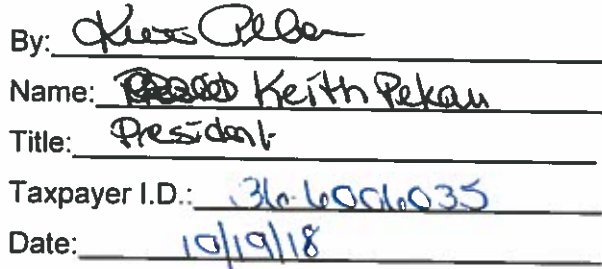 By:
Name: Keith Pekau
Title: President
Taxpayer I.D.: 36-6006035
Date: 10/19/18